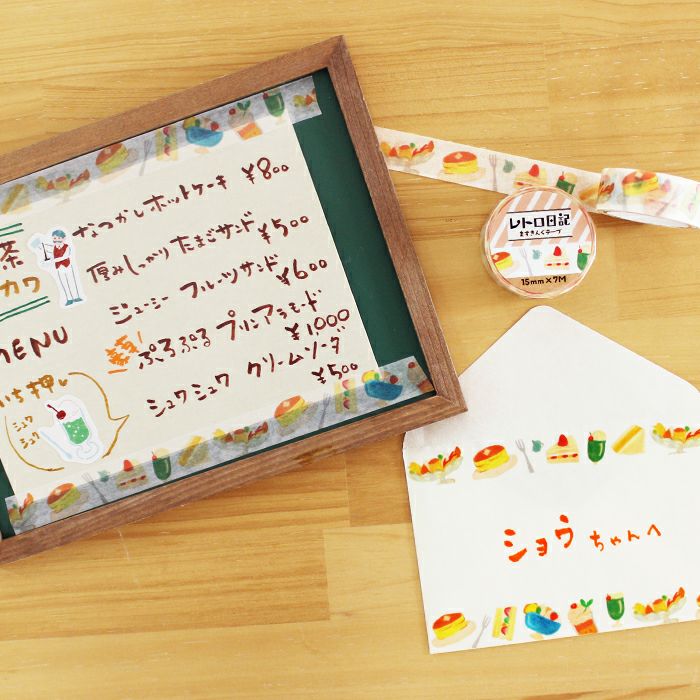 茶
カワ
MENU
いち押し
シュワ
シュワ
なつかしホットケーキ ¥800
厚みしっかり たまごサンド ¥500
ジューシー フルーツサンド ¥600
ぷるぷる プリンアラモード ¥1,000
シュワシュワ クリームソーダ ¥500
レトロ日記
ますきんぐテープ
15mm×7M
ショウちゃんへ